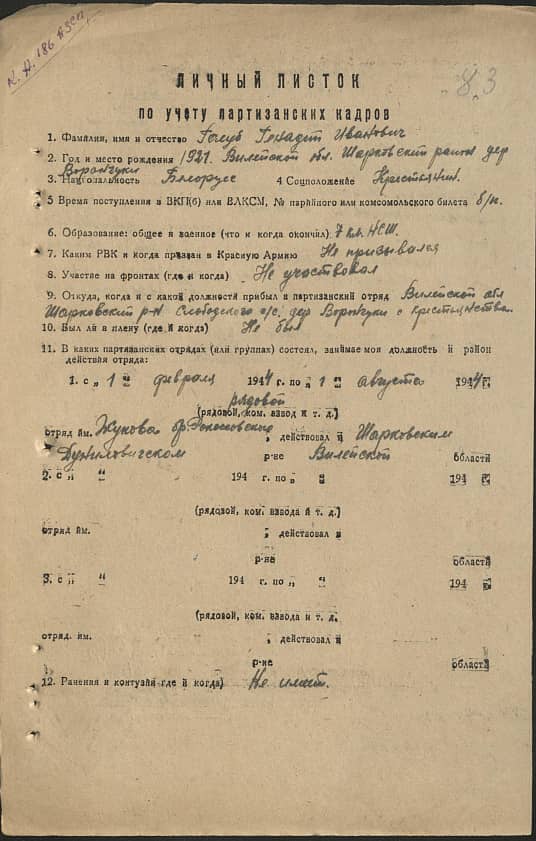 К. Н. 186
83
ЛИЧНЫЙ ЛИСТОК
по учету партизанских кадров
1. Фамилия, имя и отчество Голуб Генадит Иванович
2. Год и место рождения 1921. Вилейской обл. Шарковский район дер
Ворончуки
3. Национальность Белорусс 4 Соцположение Крестьянин.
5 Время поступления в ВКП(б) или ВЛКСМ, № партийного или комсомольского билета б/п.
6. Образование: общее и военное (что и когда окончил) 7 кл. НСШ.
7. Каким РВК и когда призван в Красную Армию Не призывался
8. Участие на фронтах (где и когда) Не участвовал
9. Откуда, когда и с какой должности прибыл в партизанский отряд Вилейской обл
Шарковский р-н Слободского с/с. дер Ворончуки с крестьянства.
10. Был ли в плену (где и когда) Не был
11. В каких партизанских отрядах (или группах) состоял, занимаемая должность и район
действия отряда:
1. с „ 1 “ февраля 1944 г. по „ 1 “ августа 1944 г.
рядовой
(рядовой, ком. взвод и т. д.)
отряд им. Жукова бр. Рокоссовского , действовал в Шарковским
Дуниловичском р-не Вилейской области
2. с „ “ 194 г. по „ “ 194 г.
(рядовой, ком. взвода и т. д.)
отряд им. , действовал в
р-не области
3. с „ “ 194 г. по „ “ 194 г.
(рядовой, ком. взвода и т. д.
отряд. им. , действовал в
р-не области
12. Ранения и контузии где и когда) Не имеет.